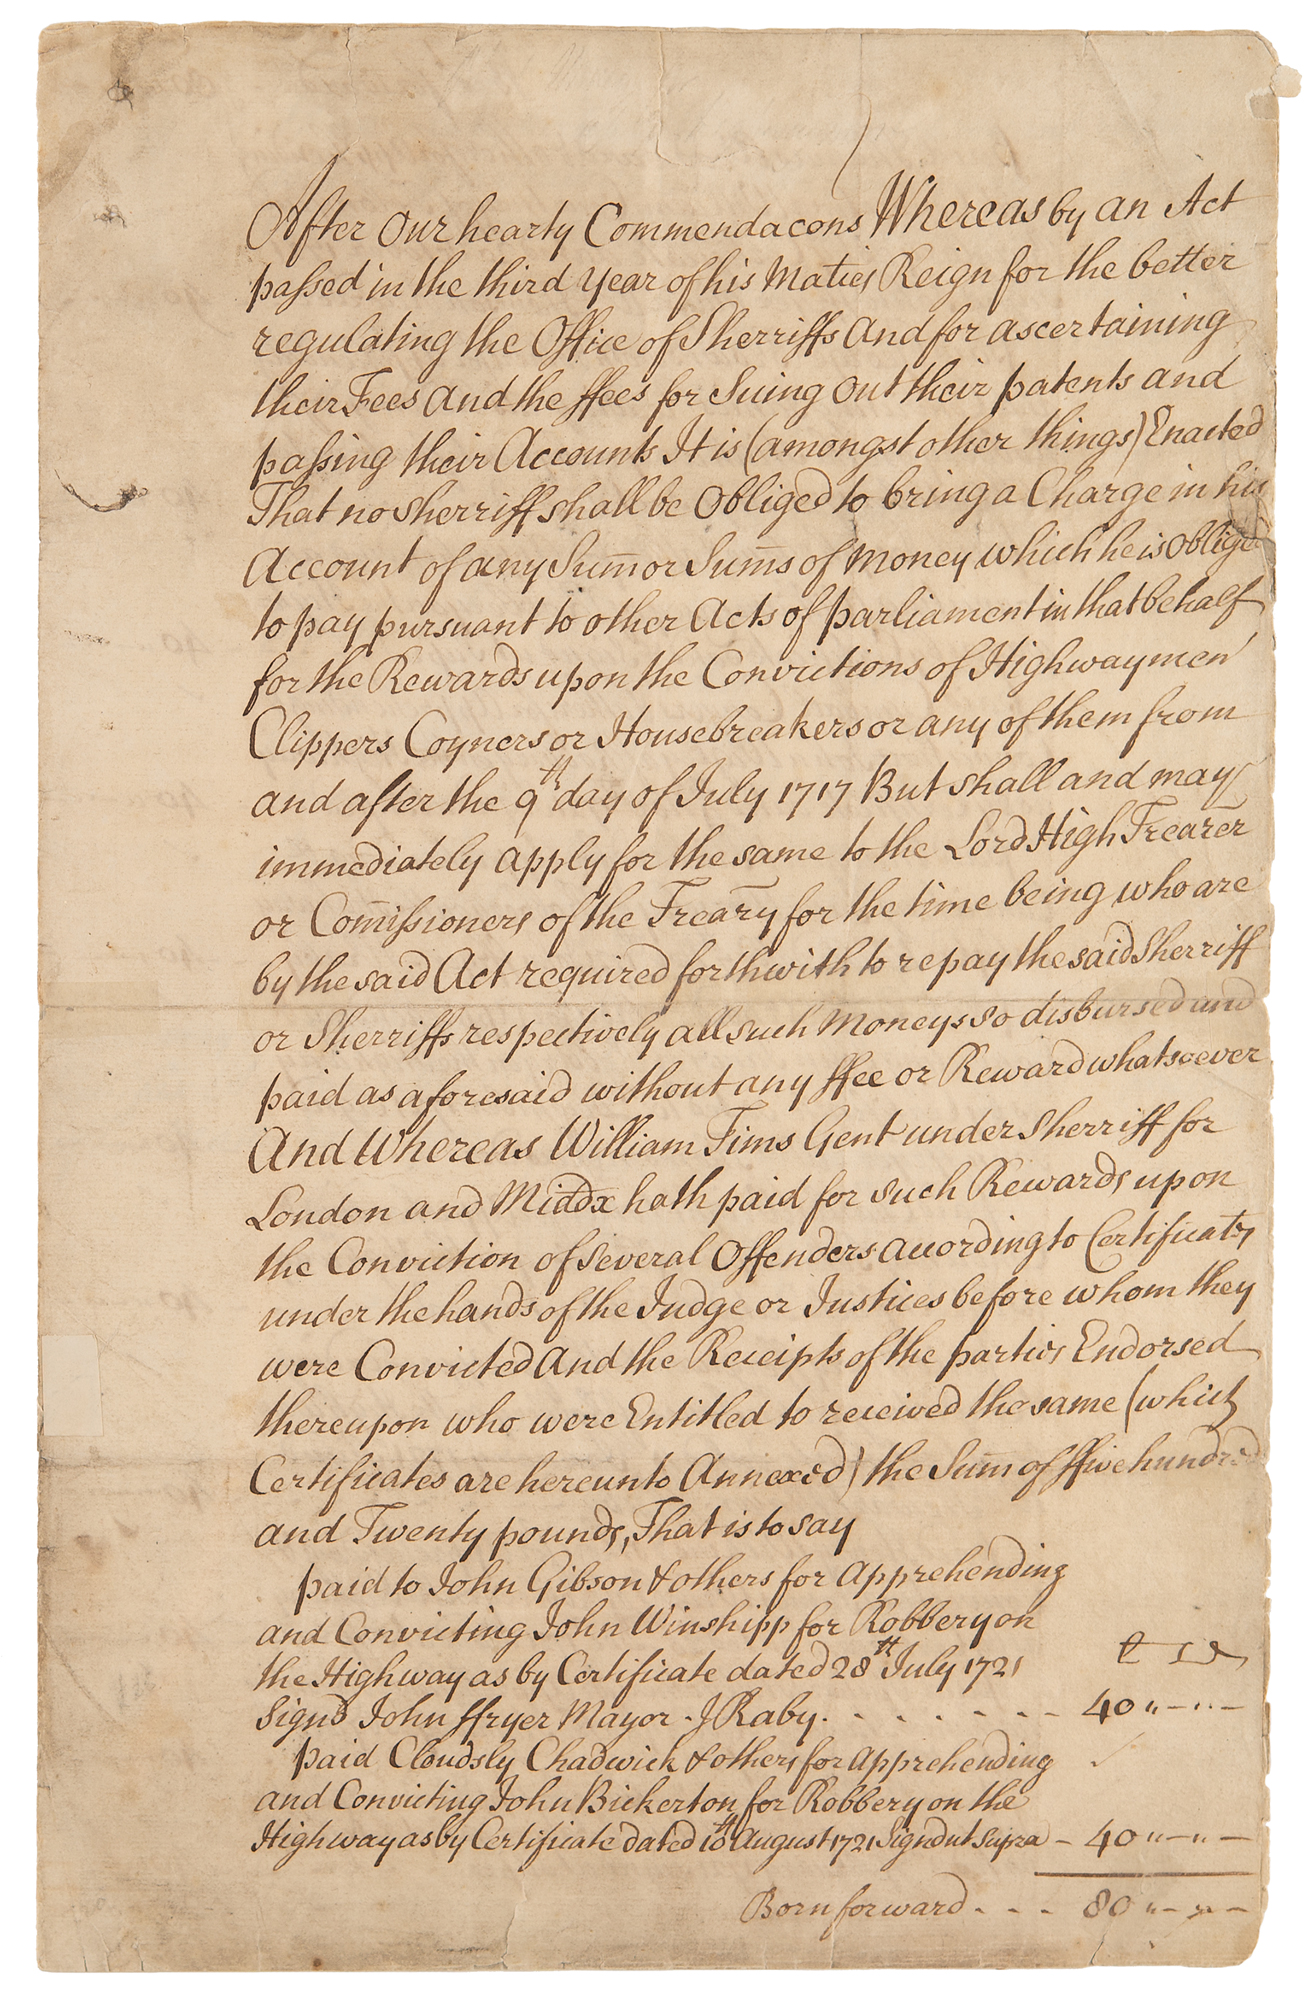 After Our hearty Commendacons Whereas by an Act
passed in the third year of his Maties Reign for the better
regulating the Office of Sherriffs And for ascertaining
their Fees And the ffees for Suing Out their patents and
passing their Accounts It is (amongst other things) Enacted
That no Sherriff shall be Obliged to bring a Charge in his
Account of any Sum̄ or Sum̄s of Money which he is Obliged
to pay pursuant to other Acts of parliament in that behalf
for the Rewards upon the Convictions of Highwaymen
Clippers Coyners or Housebreakers or any of them from
and after the 9th day of July 1717 But shall and may
immediately Apply for the same to the Lord High Trearer
or Com̄issioners of the Treary for the time being who are
by the said Act required forthwith to repay the said Sherriff
or Sherriffs respectively all such Moneys so disbursed and
paid as aforesaid without any ffee or Reward whatsoever
And Whereas William Tims Gent under Sherriff for
London and Middx hath paid for such Rewards upon
the Conviction of several Offenders according to Certificates
under the hands of the Judge or Justices before whom they
were Convicted And the Receipts of the parties Endorsed
thereupon who were Entitled to received the same (which
Certificates are hereunto Annexed) the Sum̄ of ffive hundred
and Twenty pounds, That is to say
paid to John Gibson & others for Apprehending
and Convicting John Winshipp for Robbery on
the Highway as by Certificate dated 28th July 1721 £ s d
Signd John ffryer Mayor - J Raby - - - - - - - 40 "-"-
paid Cloudsly Chadwick & others for Apprehending
and Convicting John Bickerton for Robbery on the
Highway as by Certificate dated 10th August 1721 Signd ut Supra - 40 "-"-
Born forward - - - 80 "-"-